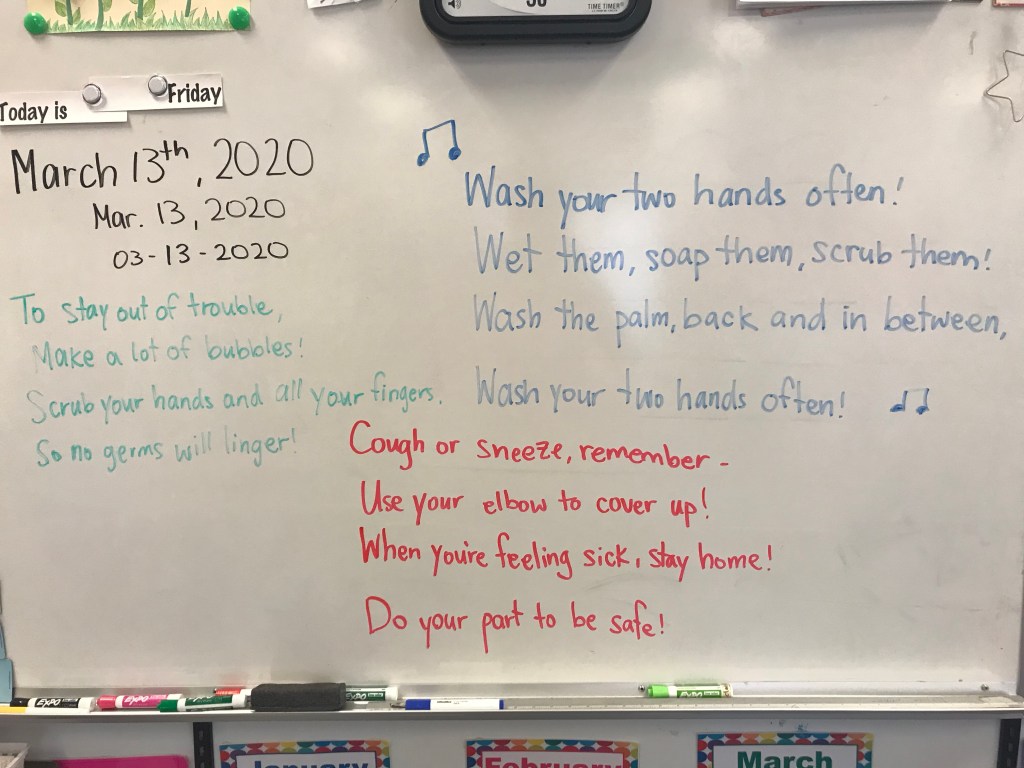 TIME TIMER
Today is Friday
March 13th, 2020
Mar. 13, 2020
03-13-2020
To stay out of trouble,
Make a lot of bubbles!
Scrub your hands and all your fingers.
So no germs will linger!
Wash your two hands often!
Wet them, soap them, scrub them!
Wash the palm, back and in between,
Wash your two hands often!
Cough or sneeze, remember -
Use your elbow to cover up!
When you're feeling sick, stay home!
Do your part to be safe!
EXPO
EXPO
EXPO
January
February
March